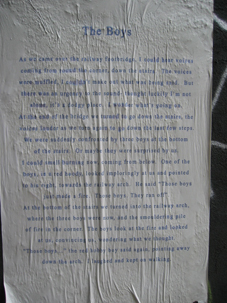 The Boys
As we came over the railway footbridge, I could hear voices
coming from round the corner, down the stairs. The voices
were muffled, I couldn't make out what was being said. But
there was an urgency to the sound. I thought luckily I'm not
alone, it's a dodgy place. I wonder what's going on.
At the end of the bridge we turned to go down the stairs, the
voices louder as we turn again to go down the last few steps
We were suddenly confronted by three boys at the bottom
of the stairs. Or maybe they were surprised by us.
I could smell burning now, coming from below. One of the
boys, in a red hoody, looked imploringly at us and pointed
to his right, towards the railway arch. He said "Those boys
just made a fire. Those boys. They ran off".
At the bottom of the stairs we turned into the railway arch,
where the three boys were now, and the smouldering pile
of fire in the corner. The boys look at the fire and looked
at us, convincing us, wondering what we thought
"Those boys," the red hoody boy said again, pointing away
down the arch. I laughed and kept on walking.